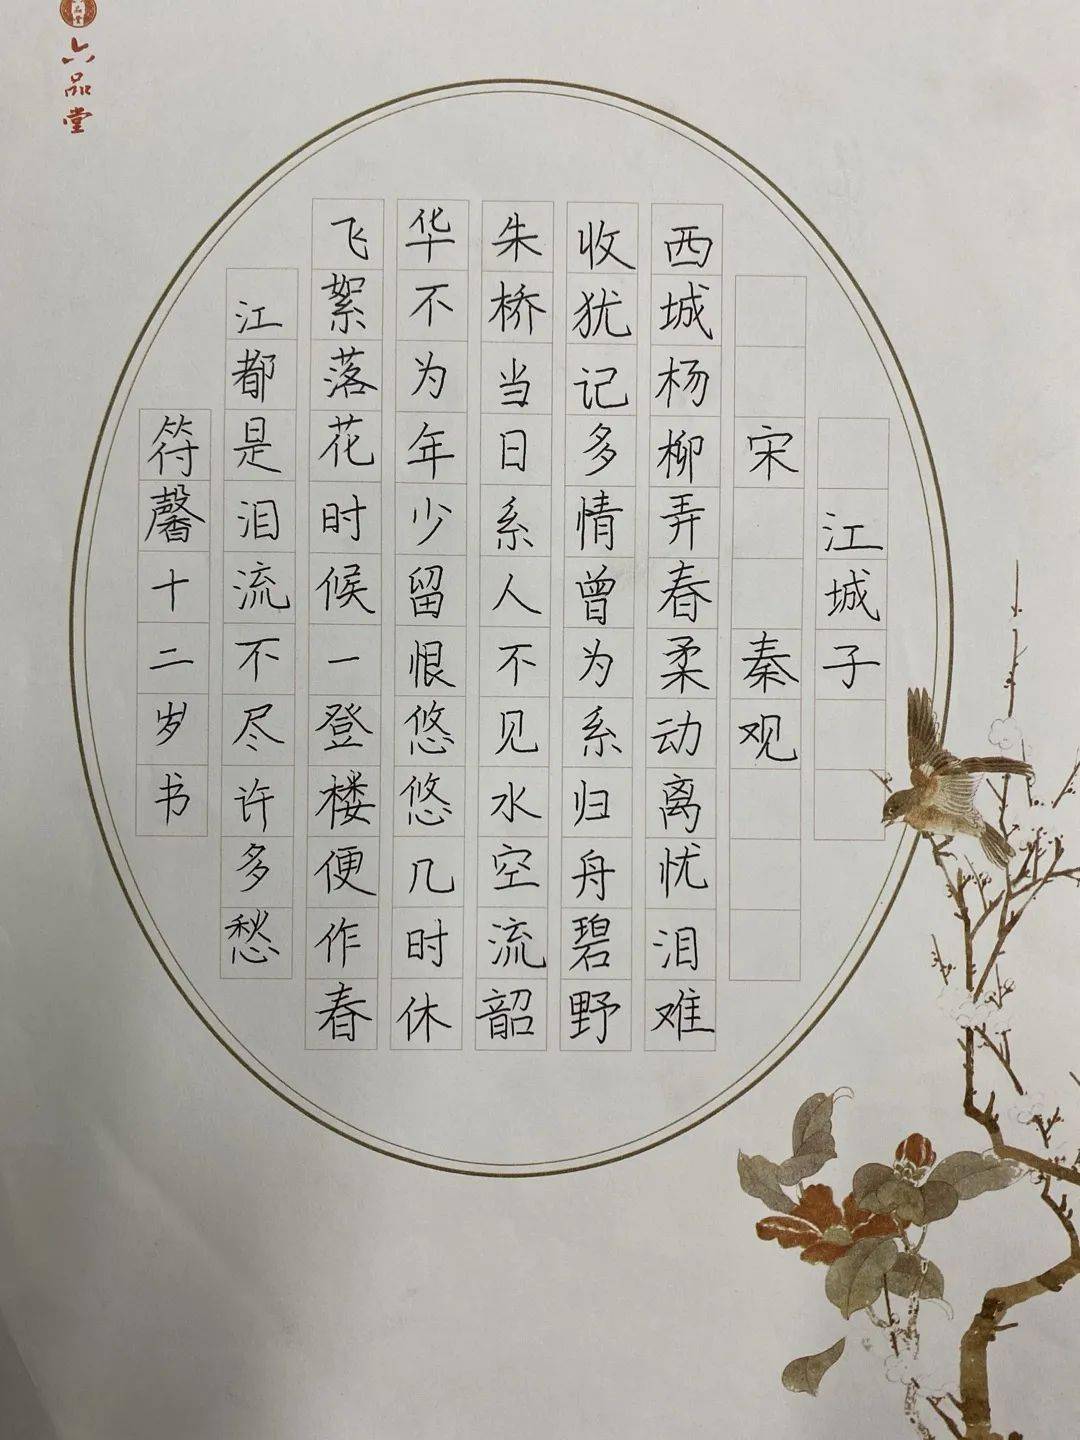 六品堂
江城子
宋 秦观
西城杨柳弄春柔动离忧泪难
收犹记多情曾为系归舟碧野
朱桥当日系人不见水空流韶
华不为年少留恨悠悠几时休
飞絮落花时候一登楼便作春
江都是泪流不尽许多愁
符馨十二岁书